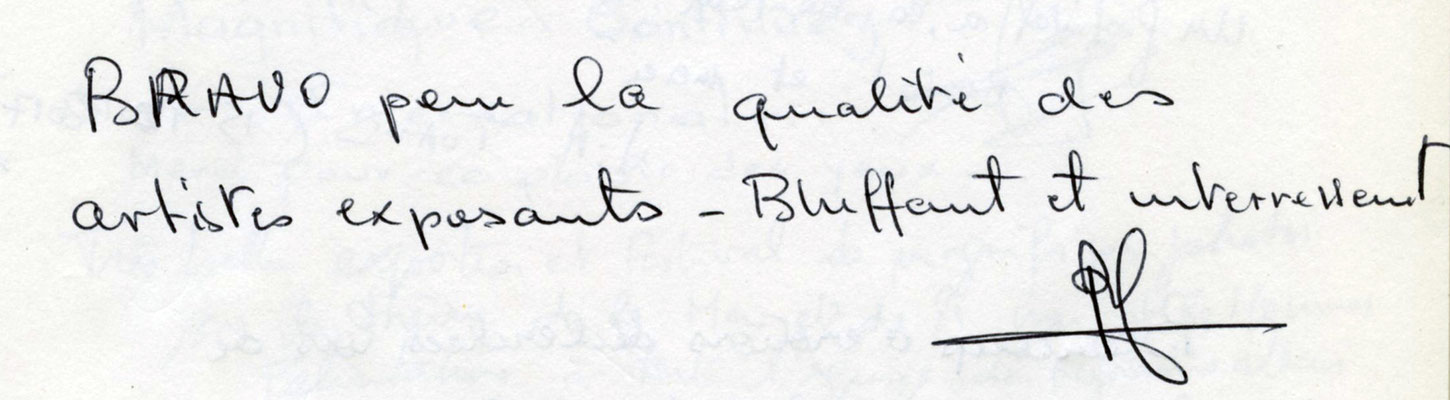 BRAVO pour la qualité des
artistes exposants - Bluffant et interressent